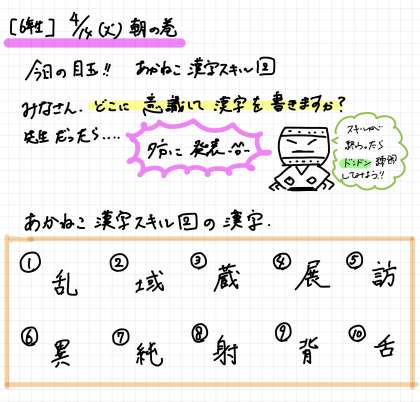 [6年生] 4/14 (火) 朝の巻
今日の目玉!! あかねこ漢字スキル②
みなさん、どこに意識して漢字を書きますか?
先生だったら....
夕方に発表^^
スキルが
終わったら
ドンドン練習
してみよう!!
あかねこ漢字スキル②の漢字.
① 乱 ② 域 ③ 蔵 ④ 展 ⑤ 訪
⑥ 異 ⑦ 純 ⑧ 射 ⑨ 背 ⑩ 舌